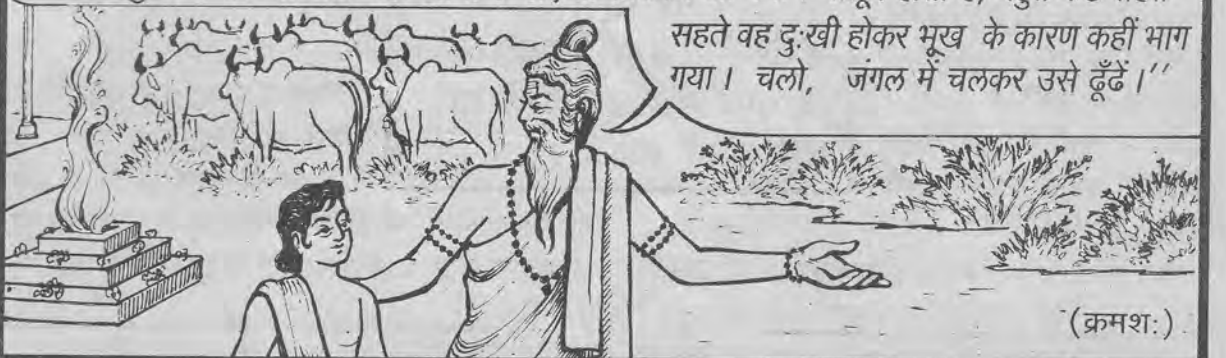 सहते वह दुःखी होकर भूख के कारण कहीं भाग
गया। चलो, जंगल में चलकर उसे ढूँढें।’’
(क्रमशः)